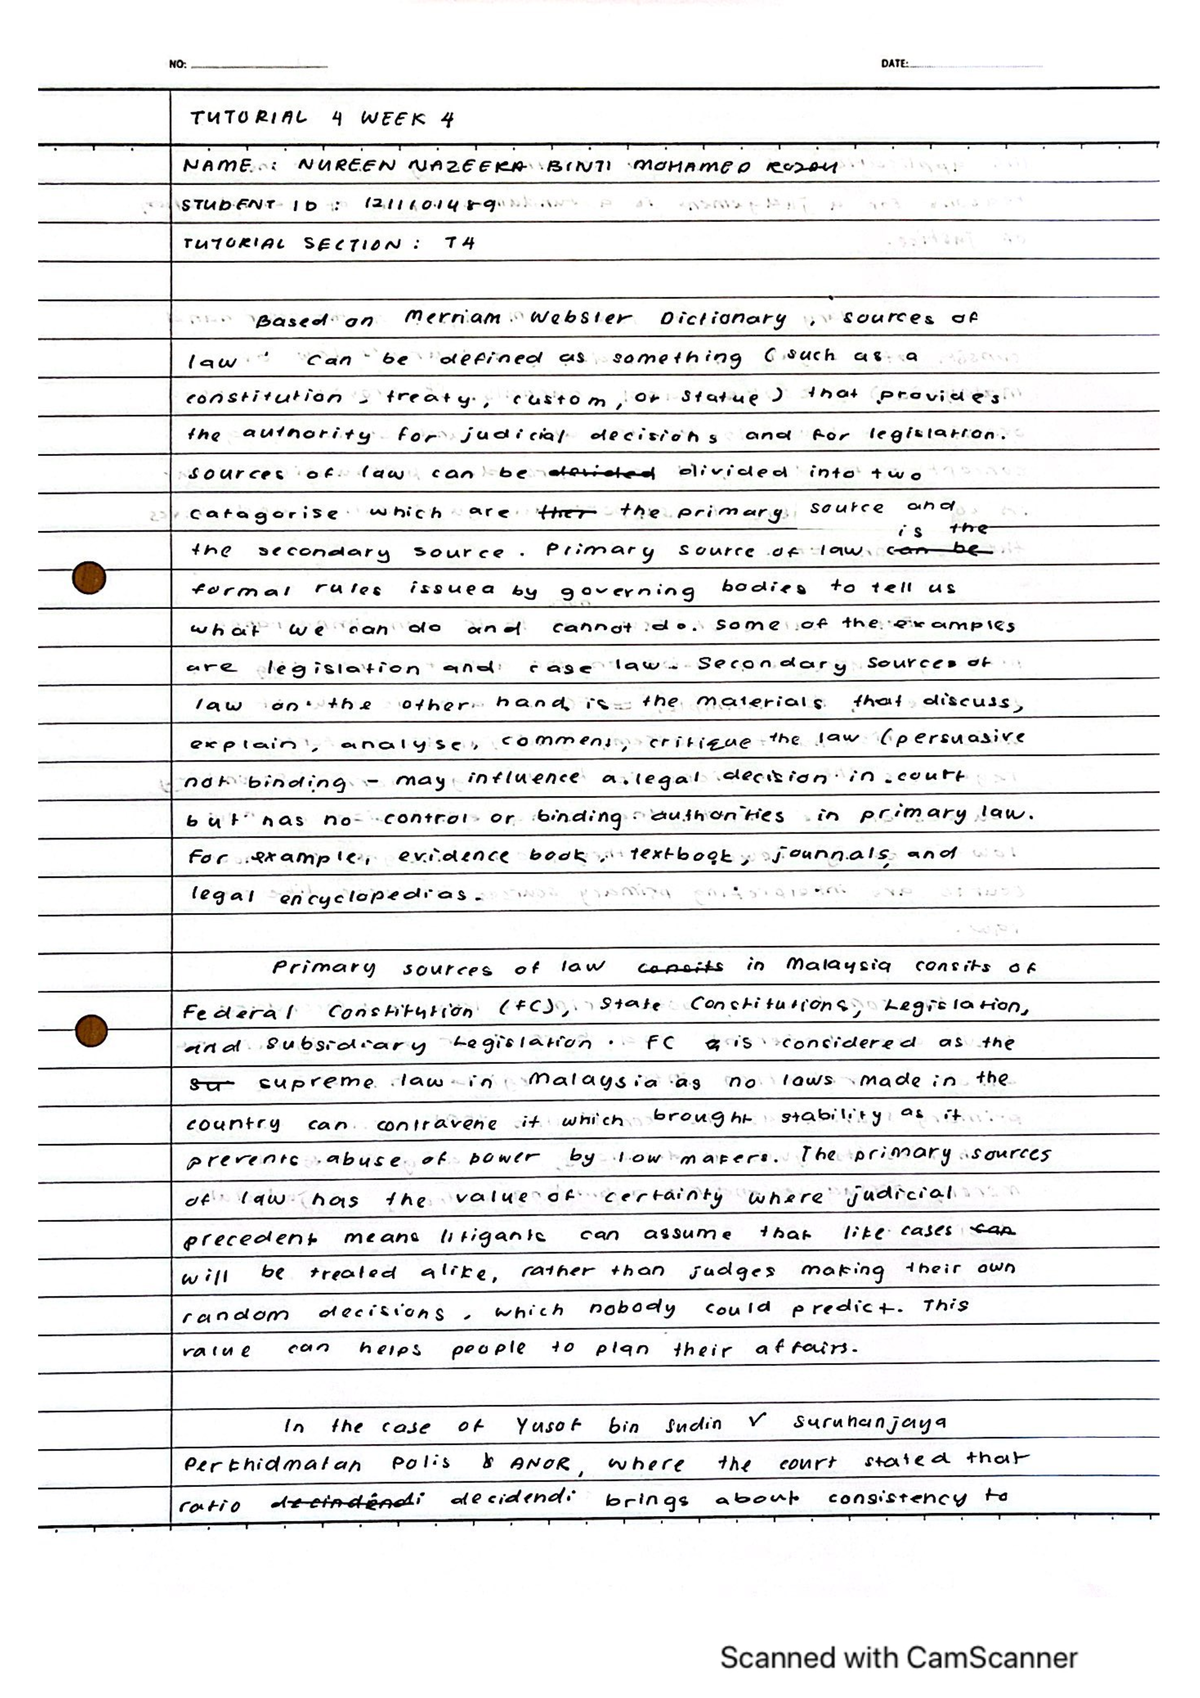 NO:
DATE:
TUTORIAL 4 WEEK 4
NAME : NUREEN NAZEERA BINTI MOHAMED ROZAN
STUDENT ID : 1211101489
TUTORIAL SECTION : T4
Based on Merriam Webster Dictionary , sources of
law can be defined as something ( such as a
constitution , treaty , custom , or statue ) that provides
the authority for judicial decisions and for legislation.
sources of law can be devided divided into two
catagorise which are ther the primary source and
is the
the secondary source . Primary source of law can be
formal rules issued by governing bodies to tell us
what we can do and cannot do. Some of the examples
are legislation and case law. Secondary sources of
law on the other hand is the materials that discuss,
explain , analyse , commens, critique the law (persuasive
not binding - may influence a legal decision in court
but has no control or binding authorities in primary law.
For example, evidence book , textbook , journnals, and
legal encyclopedias.
Primary sources of law consits in Malaysia consits of
Federal Constitution (FC), State Constitutions, Legislation,
and Subsidiary Legislation . FC is concidered as the
su supreme law in Malaysia as no laws made in the
country can contravene it which brought stability as it
prevents abuse of power by law makers. The primary sources
of law has the value of certainty where judicial
precedent means litigants can assume that like cases can
will be treated alike, rather than judges making their own
random decisions , which nobody could predict. This
value can helps people to plan their affairs.
In the case of Yusof bin Sudin v Suruhanjaya
Perkhidmatan Polis & ANOR, where the court stated that
ratio decindendi decidendi brings about consistency to
Scanned with CamScanner